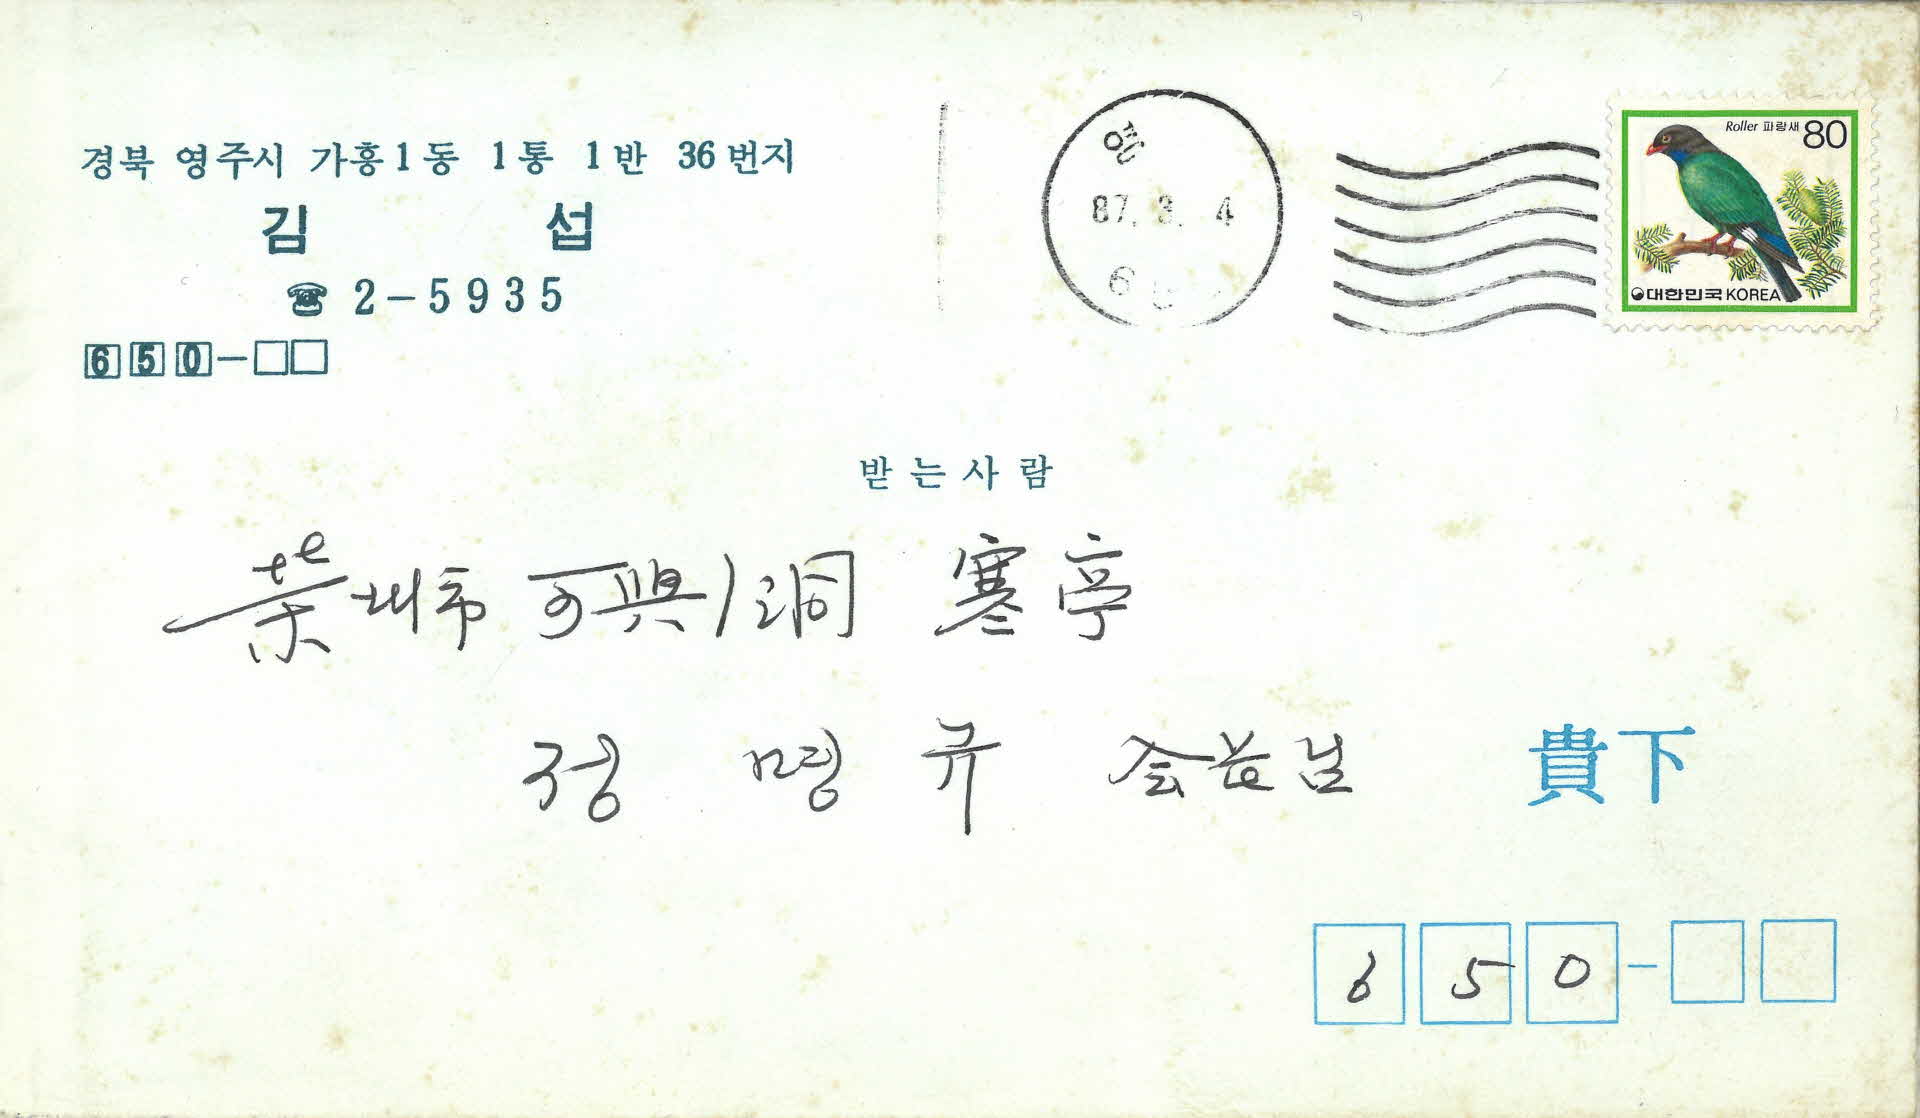 경북 영주시 가흥1동 1통 1반 36번지
김 섭
☎ 2-5935
650-
87. 3. 4
6
Roller 파랑새 80
대한민국 KOREA
받는사람
榮州市 可興1洞 寒亭
정 명 규 会长님 貴下
650-